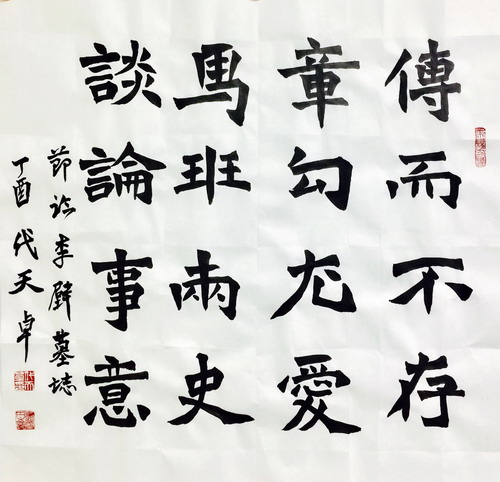 傳而不存
章勾尤愛
馬班兩史
談論事意
節临李壁墓誌
丁酉代天卓